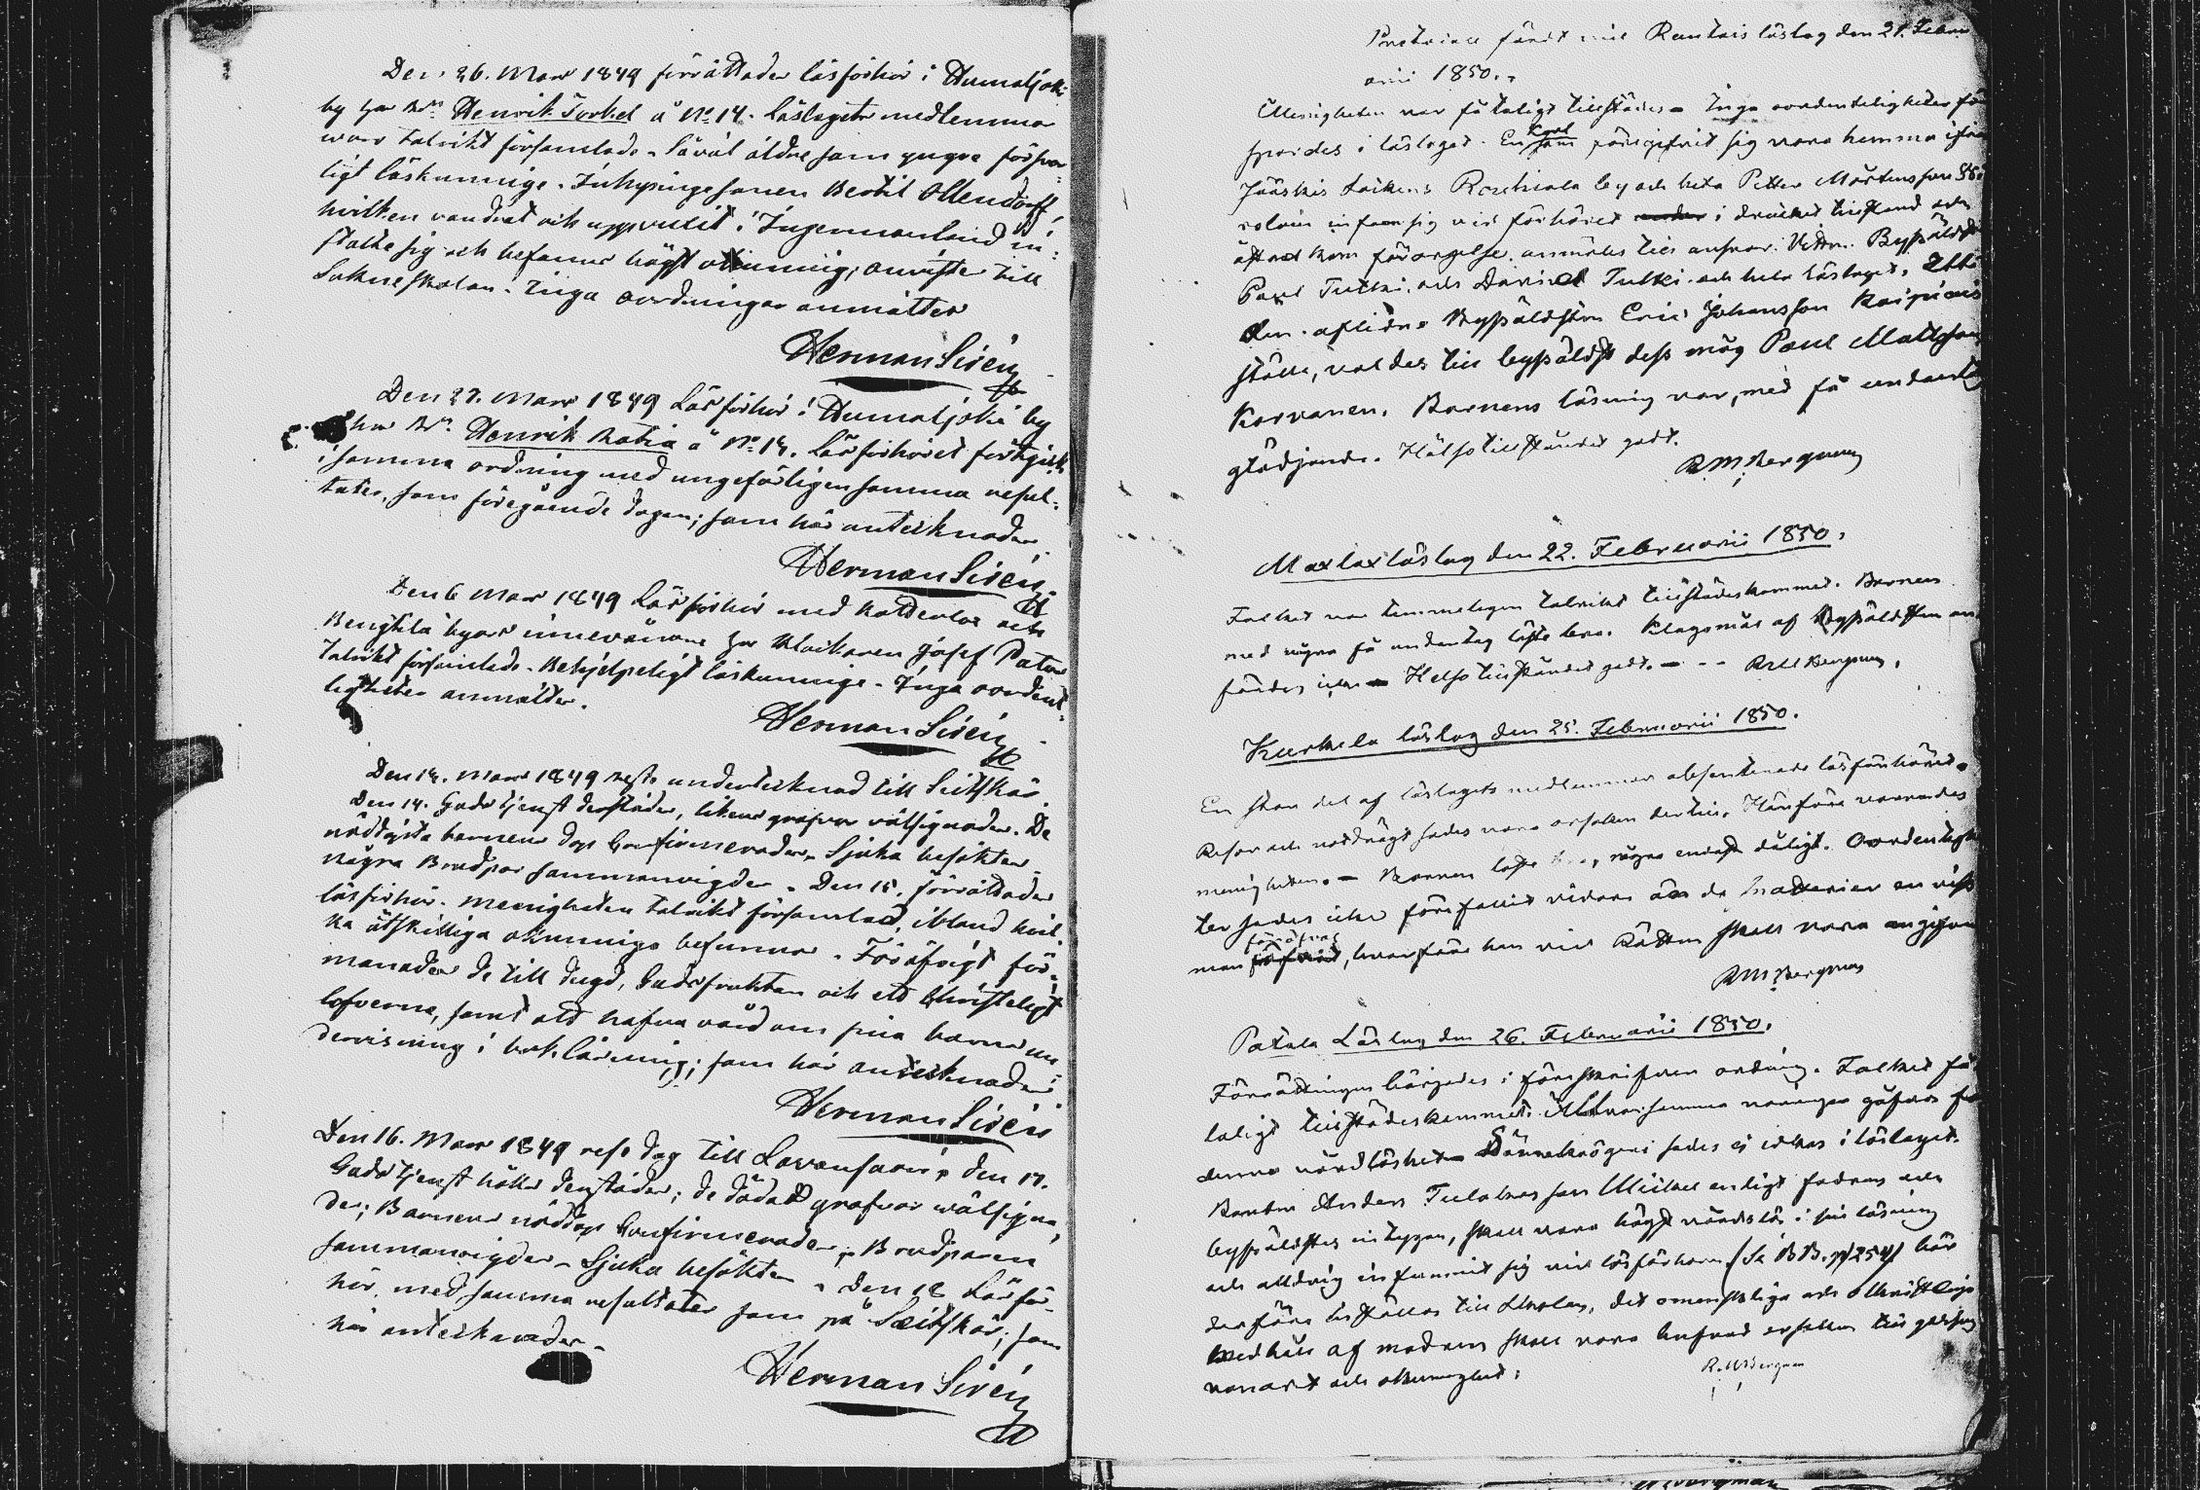 Den 26. Mars 1849 förrättades läsförhör i Humaljoki
by hos Bn Henrik Torkel å No 14. Läslagets medlemmar
woro talrikt församlade. Såväl äldre som yngre försvar-
ligt läskunnige. Inhysingesonen Bertil Ollendorff,
hvilken vandrat och uppvuxit i Ingermanland in-
stälte sig och befanns högst okunnig, anvistes till
Sokneskolan. Inga oordningar anmältes
Herman Sirén
Den 27. Mars 1849 Läsförhör i Humaljoki by
hos Bn. Henrik Ratia å No 14. Läsförhöret förtgick
i samma ordning med ungefärligen samma resul-
tater, som föregående dagen; som här antecknades.
Herman Sirén
Den 6 Mars 1849 Läsförhör med Katterlax och
Bengtilä byars innevånare hos Klockaren Josef
Talrikt församlade. Behjelpeligt läskunnige. Inga oordent-
ligheter anmältes.
Herman Sirén
Den 13. Mars 1849 reste undertecknad till Seitskär
Den 14. Gudstjenst derstädes, likens grafvar välsignades. De
nöddöpta barnens dop Confirmerades. Sjuka besöktes
några Brudpar sammanvigdes. Den 15. förrättades
läsförhör. Menigheten talrikt församlad, ibland hvil-
ka åtskilliga okunniga befunnos. Föröfrigt för-
manades de till dygd, Gudsfruktan och ett Christeligt
lefverne, samt att hafva vård om sina barns un-
dervisning i boklärning; som här antecknades
Herman Sirén
Den 16. Mars 1849 reste Jag till Lavansaari, den 17.
Gudstjenst hölls derstädes; de dödas grafvar wälsigna-
des; Barnens nöddop Confirmerades, Brudparen
sammanvigdes. Sjuka besöktes. Den 18 Läsför-
hör, med samma resultater som på Seitskär; som
här antecknades.
Herman Sirén
fördt vid Rautais läslag den 21. Febru
arii 1850.
Menigheten var fåtaligt tillstädes. Inga oordentligheter för
spordes i läslaget. En Karl som sig vara hemma ifrån
Jääskis Sockens by och heta Petter Mårtensson
infann sig vid förhöret i drucket tillstånd och
åstadkom förargelse, anmäles till ansvar. Vittn. Byssäldsten
Paul Tulki och David Tulki och hela Läslaget. Uti
den aflidne Byssäldsten Eric Johansson
ställe, valdes till byssäldst dess måg Paul Mattsson
Korvanen. Barnens läsning var, med få undantag
glädjande. Hälsotillståndet godt.
R.M. Bergman
Maxlax läslag den 22. Februarii 1850.
Folket var temmeligen talrikt tillstädeskommet. Barnen
med några få undantag läste bra. Klagomål af Byssäldsten an
fördes icke. Helsotillståndet godt. - - - R.M. Bergman.
Kurkela läslag den 25. Februarii 1850.
En stor del af läslagets medlemmar absenterade läsförhöret.
Resor och nöddrägt sades vara orsaken dertill. Härföre varnades
menigheten. Barnen läste bra, några endast dåligt. Oordentlighe
ter sades icke förefallit vidare än de en viss
man föröfvat, hvarföre han vid Rätten skall vara angifven
R.M. Bergman
Patala Läslag den 26. Februarii 1850.
Förrättningen börjades i föreskrifven ordning. Folket få-
taligt tillstädeskommet. Allvarsamma varningar gåfvos för
denna vårdlöshet. Lönnkrögeri sades ej idkas i läslaget.
Bonden Anders son Mickel enligt fadrens och
byssäldstes intygan, skall vara högst vårdslös i sin läsning
och alldrig infunnit sig vid läsförhören (Se B.B. p 254) bör
derföre inställas till skolan, det omenskliga och okristliga
medhåll af modren skall vara hufvud orsaken till gossens
vanart och okunnighet.
R.M. Bergman